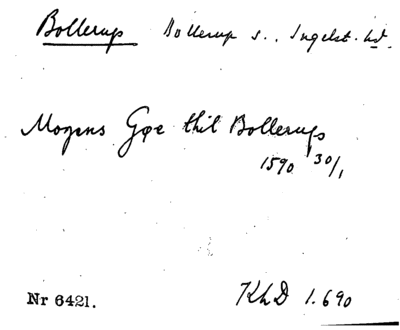 Bollerup Bollerup s., Ingelst. hd.
Mogens Gøe thil Bollerup
1590 30/1
Nr 6421. KhD 1.690